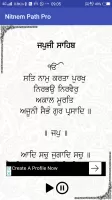 09:06
Nitnem Path Pro
ਜਪੁਜੀ ਸਾਹਿਬ
ੴ
ਸਤਿ ਨਾਮੁ ਕਰਤਾ ਪੁਰਖੁ
ਨਿਰਭਉ ਨਿਰਵੈਰੁ
ਅਕਾਲ ਮੂਰਤਿ
ਅਜੂਨੀ ਸੈਭੰ ਗੁਰ ਪ੍ਰਸਾਦਿ ॥
॥ ਜਪੁ ॥
ਆਦਿ ਸਚੁ ਜੁਗਾਦਿ ਸਚੁ ॥
Create A Profile Now